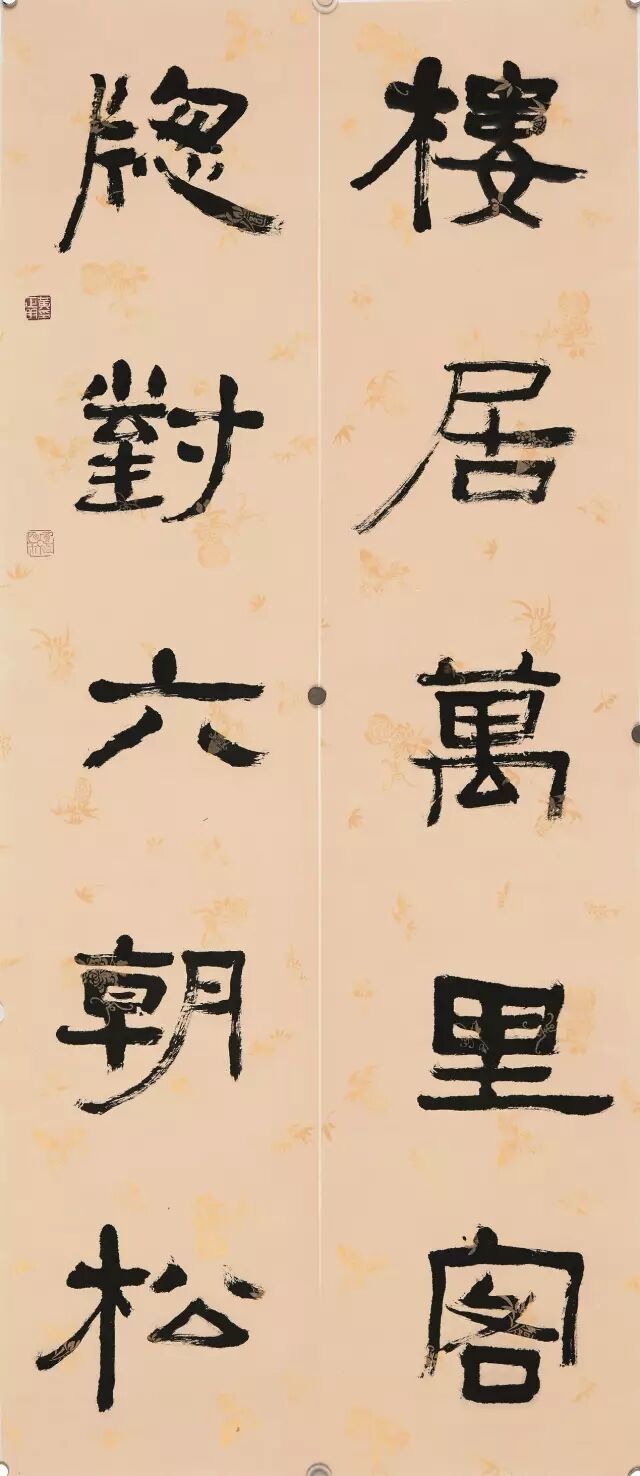 樓居萬里客
牎對六朝松